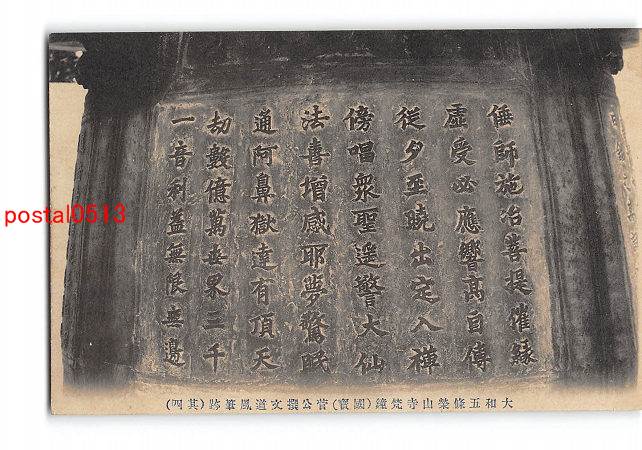 倕師施冶菩提催縁
虚受必應響高自傳
從夕至曉出定入禪
傍唱衆聖遥警大仙
法喜増感耶夢驚眠
通阿鼻獄達有頂天
劫數億萬世界三千
一音利益無限無邊
大和五條榮山寺梵鐘(國寶)菅公撰文道風筆跡(其四)
postal0513